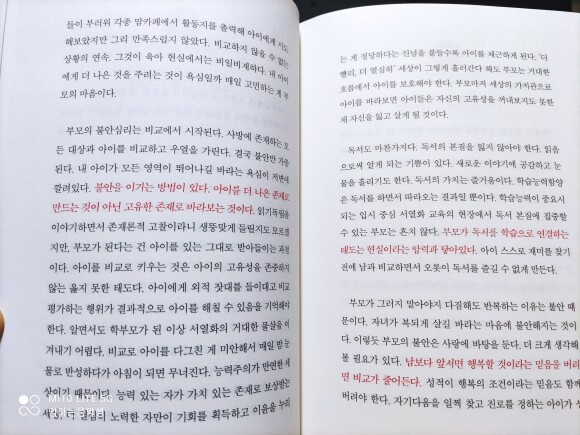 들이 부러워 각종 맘카페에서 활동지를 출력해 아이에게 시도
해보았지만 그리 만족스럽지 않았다. 비교하지 않을 수 없는
상황의 연속. 그것이 육아 현실에서는 비일비재하다. 내 아이
에게 더 나은 것을 주려는 것이 욕심일까 매일 고민하는 게 부
모의 마음이다.
부모의 불안심리는 비교에서 시작된다. 사방에 존재하는 모
든 대상과 아이를 비교하고 우열을 가린다. 결국 불안만 가중
된다. 내 아이가 모든 영역이 뛰어나길 바라는 욕심이 저변에
깔려있다. 불안을 이기는 방법이 있다. 아이를 더 나은 존재로
만드는 것이 아닌 고유한 존재로 바라보는 것이다. 읽기독립을
이야기하면서 존재론적 고찰이라니 생뚱맞게 들릴지도 모르겠
지만, 부모가 된다는 건 아이를 있는 그대로 받아들이는 과정
이다. 아이를 비교로 키우는 것은 아이의 고유성을 존중하지
않는 옳지 못한 태도다. 아이에게 외적 잣대를 들이대고 비교
평가하는 행위가 결과적으로 아이를 해칠 수 있음을 기억해야
한다. 알면서도 학부모가 된 이상 서열화의 거대한 물살을 이
겨내기 어렵다. 비교로 아이를 다그친 게 미안해서 매일 밤 눈
물로 반성하다가 아침이 되면 무너진다. 능력주의가 만연한 세
상이기 때문이다. 능력 있는 자가 가치 있는 존재로 보상받는
다. 열심히 노력한 자만이 기회를 획득하고 이윤을 누리
는 게 정당하다는 신념을 붙들수록 아이를 채근하게 된다. '더
빨리, 더 열심히' 세상이 그렇게 흘러간다 해도 부모는 거대한
흐름에서 아이를 보호해야 한다. 부모마저 세상의 가치관으로
아이를 바라보면 아이들은 자신의 고유성을 꺼내보지도 못한
채 자신을 잃고 살게 될 것이다.
독서도 마찬가지다. 독서의 본질을 잃지 않아야 한다. 읽음
으로써 알게 되는 기쁨이 있다. 새로운 이야기에 공감하고 눈
물을 흘리기도 한다. 독서의 가치는 즐거움이다. 학습능력향상
은 독서를 하면서 따라오는 결과일 뿐이다. 학습능력이 중요시
되는 입시 중심 서열화 교육의 현장에서 독서 본질에 집중할
수 있는 부모는 흔치 않다. 부모가 독서를 학습으로 연결하는
태도는 현실이라는 압력과 닿아있다. 아이 스스로 재미를 찾기
전에 남과 비교하면서 오롯이 독서를 즐길 수 없게 만든다.
부모가 그러지 말아야지 다짐해도 반복하는 이유는 불안 때
문이다. 자녀가 복되게 살길 바라는 마음에 불안해지는 것이
다. 이렇듯 부모의 불안은 사랑에 바탕을 둔다. 더 크게 생각해
볼 필요가 있다. 남보다 앞서면 행복할 것이라는 믿음을 버리
면 비교가 줄어든다. 성적이 행복의 조건이라는 믿음도 함께
버려야 한다. 자기다움을 일찍 찾고 진로를 정하는 아이가 성
MI TO LITE 5G